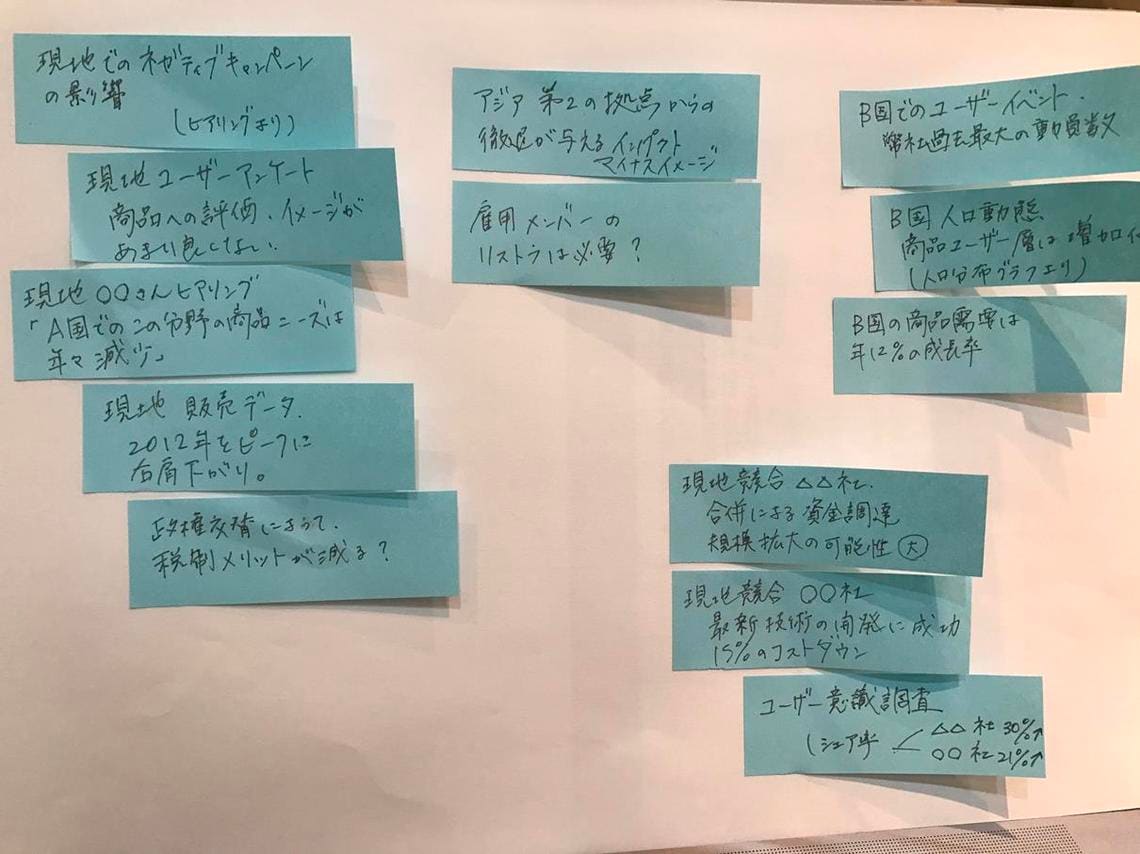 現地でのネガティブキャンペーン
の影響
(ヒアリングより)
現地ユーザーアンケート
商品への評価、イメージが
あまり良くない。
現地○○さんヒアリング
「A国でのこの分野の商品ニーズは
年々減少」
現地 販売データ.
2012年をピークに
右肩下がり。
政権交替によって、
税制メリットが減る?
アジア第2の拠点からの
撤退が与えるインパクト
マイナスイメージ
雇用メンバーの
リストラは必要?
B国でのユーザーイベント.
弊社過去最大の動員数
B国人口動態
商品ユーザー層は増加
(人口分布グラフより)
B国の商品需要は
年12%の成長率
現地競合 △△社.
合併による資金調達
規模拡大の可能性 大
現地競合 ○○社
最新技術の開発に成功
15%のコストダウン
ユーザー意識調査
(シェア率
△△社 30%↑
○○社 21%↑